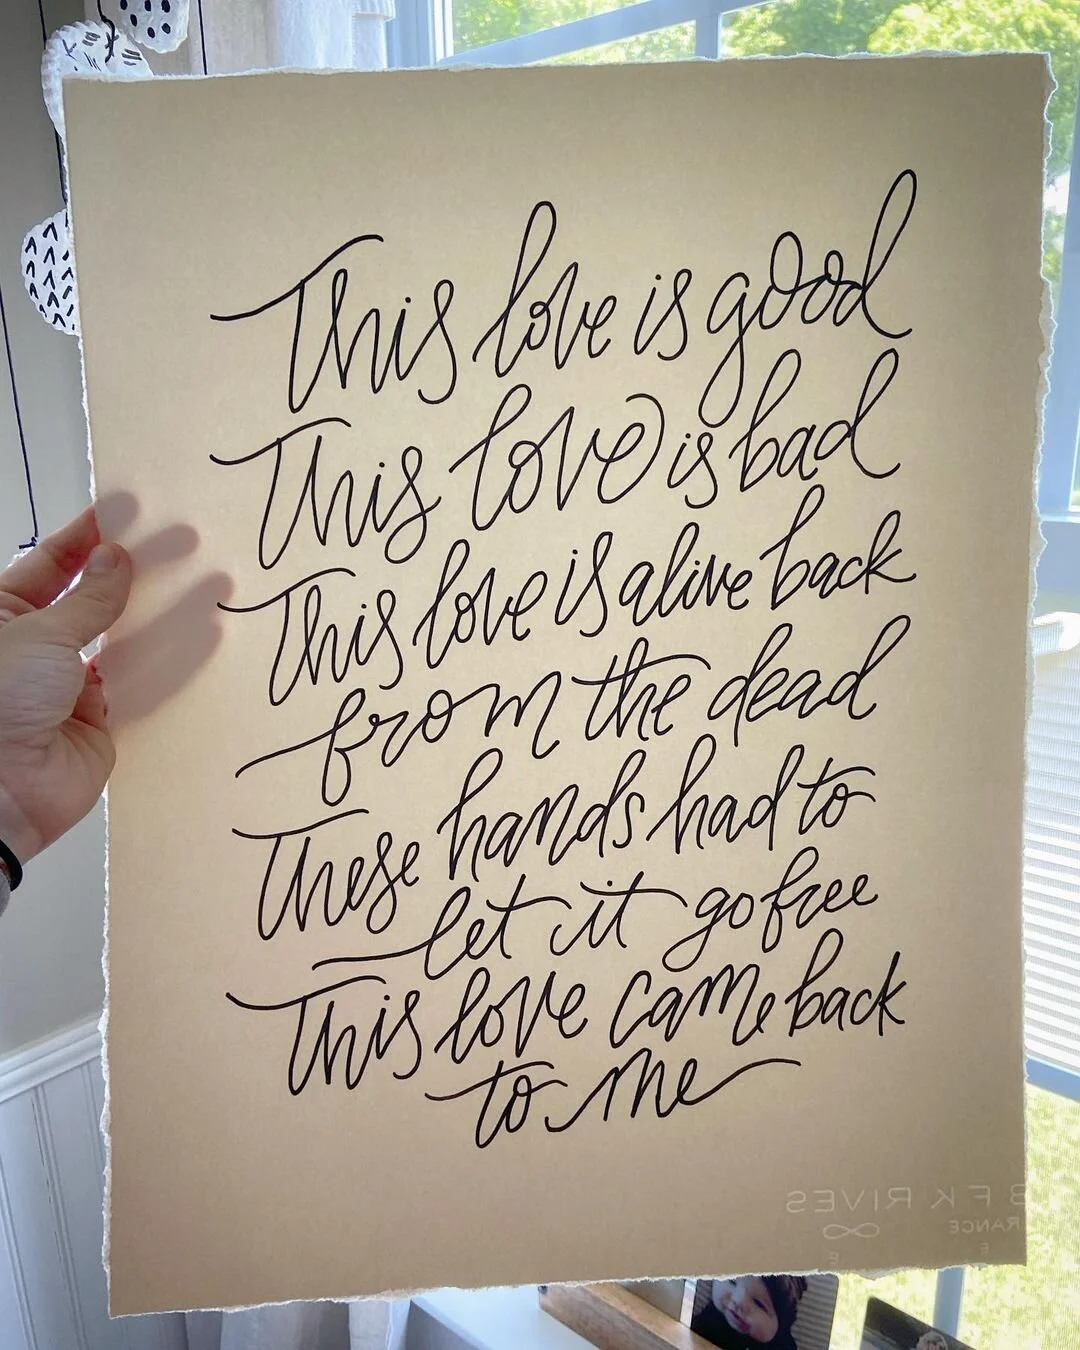 This love is good
This love is bad
This love is alive back
from the dead
These hands had to
let it go free
This love came back
to me
BFK RIVES
RANCE